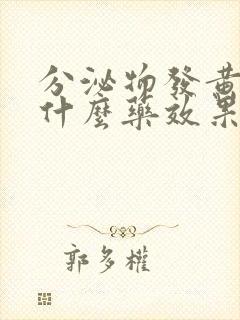 分泌物發黃
什麼藥效果
郭多權